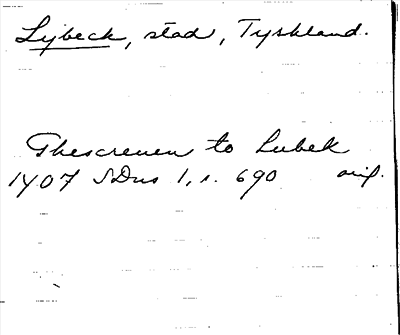 Lybeck, stad, Tyskland.
Ghescreuen to Lubek
1407 SDns 1, s. 690 orig.